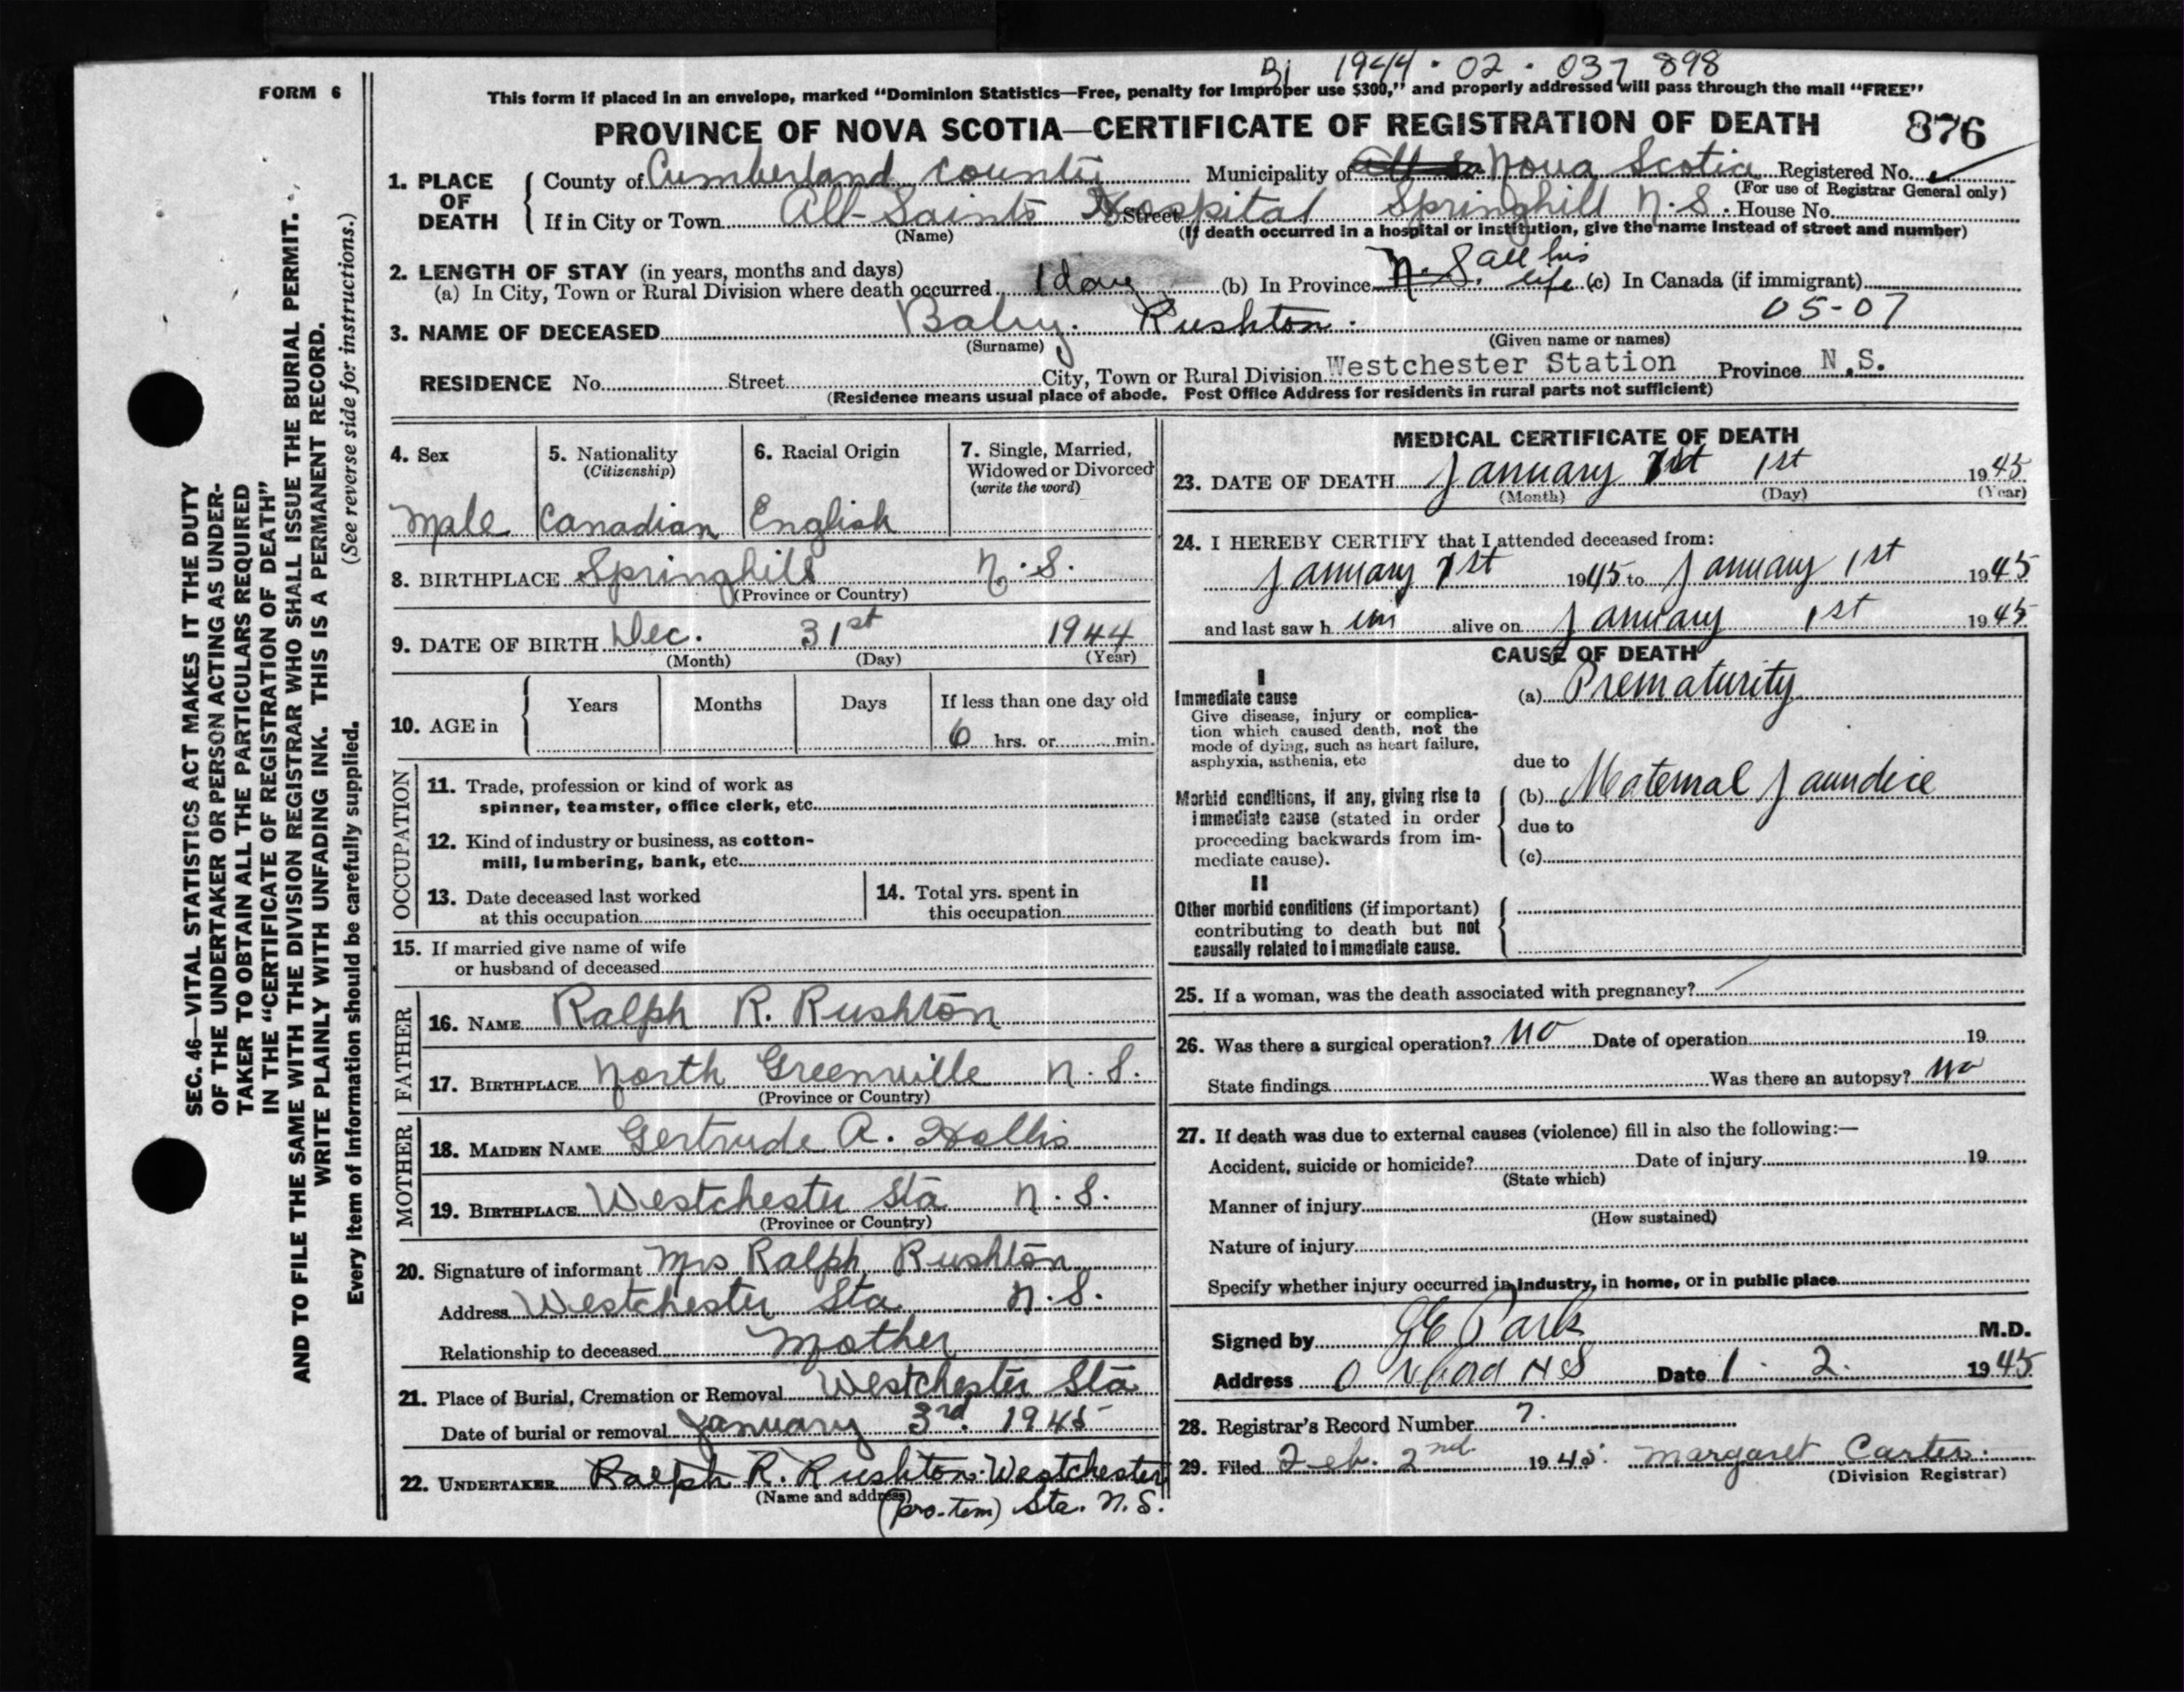 Bj 1944 · 02 · 037 898
FORM 6
This form if placed in an envelope, marked "Dominion Statistics—Free, penalty for Improper use $300," and properly addressed will pass through the mail "FREE"
PROVINCE OF NOVA SCOTIA—CERTIFICATE OF REGISTRATION OF DEATH 876
1. PLACE OF DEATH
County of Cumberland County Municipality of Nova Scotia Registered No. ✓
(For use of Registrar General only)
If in City or Town All-Saints Hospital Street Springhill N.S. House No.
(Name) (If death occurred in a hospital or institution, give the name instead of street and number)
2. LENGTH OF STAY (in years, months and days)
(a) In City, Town or Rural Division where death occurred 1 day (b) In Province N.S. all his life (c) In Canada (if immigrant)
3. NAME OF DECEASED Baby. Rushton. 05-07
(Surname) (Given name or names)
RESIDENCE No. Street City, Town or Rural Division Westchester Station Province N.S.
(Residence means usual place of abode. Post Office Address for residents in rural parts not sufficient)
4. Sex Male
5. Nationality (Citizenship) Canadian
6. Racial Origin English
7. Single, Married, Widowed or Divorced (write the word)
8. BIRTHPLACE Springhill N.S.
(Province or Country)
9. DATE OF BIRTH Dec. 31st 1944
(Month) (Day) (Year)
10. AGE in Years Months Days If less than one day old
6 hrs. or min.
OCCUPATION
11. Trade, profession or kind of work as
spinner, teamster, office clerk, etc.
12. Kind of industry or business, as cotton-
mill, lumbering, bank, etc.
13. Date deceased last worked
at this occupation
14. Total yrs. spent in
this occupation
15. If married give name of wife
or husband of deceased
FATHER
16. NAME Ralph R. Rushton
17. BIRTHPLACE North Greenville N.S.
(Province or Country)
MOTHER
18. MAIDEN NAME Gertrude A. Hollis
19. BIRTHPLACE Westchester Sta N.S.
(Province or Country)
20. Signature of informant Mrs Ralph Rushton
Address Westchester Sta N.S.
Relationship to deceased Mother
21. Place of Burial, Cremation or Removal Westchester Sta
Date of burial or removal January 3rd. 1945
22. UNDERTAKER Ralph R. Rushton. Westchester
(Name and address) (pro-tem) Sta. N.S.
MEDICAL CERTIFICATE OF DEATH
23. DATE OF DEATH January 1st 1st 1945
(Month) (Day) (Year)
24. I HEREBY CERTIFY that I attended deceased from:
January 1st 1945 to January 1st 1945
and last saw h im alive on January 1st 1945
CAUSE OF DEATH
I
Immediate cause
Give disease, injury or complica-
tion which caused death, not the
mode of dying, such as heart failure,
asphyxia, asthenia, etc
(a) Prematurity
due to
Morbid conditions, if any, giving rise to
immediate cause (stated in order
proceeding backwards from im-
mediate cause).
(b) Maternal Jaundice
due to
(c)
II
Other morbid conditions (if important)
contributing to death but not
causally related to immediate cause.
25. If a woman, was the death associated with pregnancy?
26. Was there a surgical operation? No Date of operation 19
State findings Was there an autopsy? No
27. If death was due to external causes (violence) fill in also the following:—
Accident, suicide or homicide? Date of injury 19
(State which)
Manner of injury
(How sustained)
Nature of injury
Specify whether injury occurred in industry, in home, or in public place
Signed by GE Park M.D.
Address Oxford NS Date 1 · 2. 1945
28. Registrar's Record Number 7.
29. Filed Feb. 2nd 1945. Margaret Carter.
(Division Registrar)
SEC. 46—VITAL STATISTICS ACT MAKES IT THE DUTY
OF THE UNDERTAKER OR PERSON ACTING AS UNDER-
TAKER TO OBTAIN ALL THE PARTICULARS REQUIRED
IN THE "CERTIFICATE OF REGISTRATION OF DEATH"
AND TO FILE THE SAME WITH THE DIVISION REGISTRAR WHO SHALL ISSUE THE BURIAL PERMIT.
WRITE PLAINLY WITH UNFADING INK. THIS IS A PERMANENT RECORD.
(See reverse side for instructions.)
Every item of information should be carefully supplied.